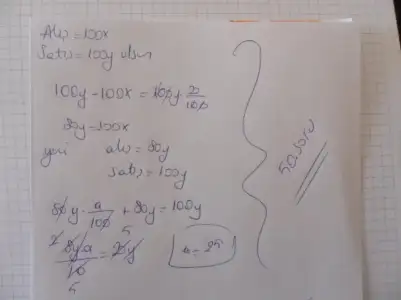 Alış=100x
Satış=100y olsun
100y-100x=100y 20/100
80y=100x
yani alış=80y
satış=100y
80y·a/100+80y=100y
8ya/10=20y
a=25
50.soru